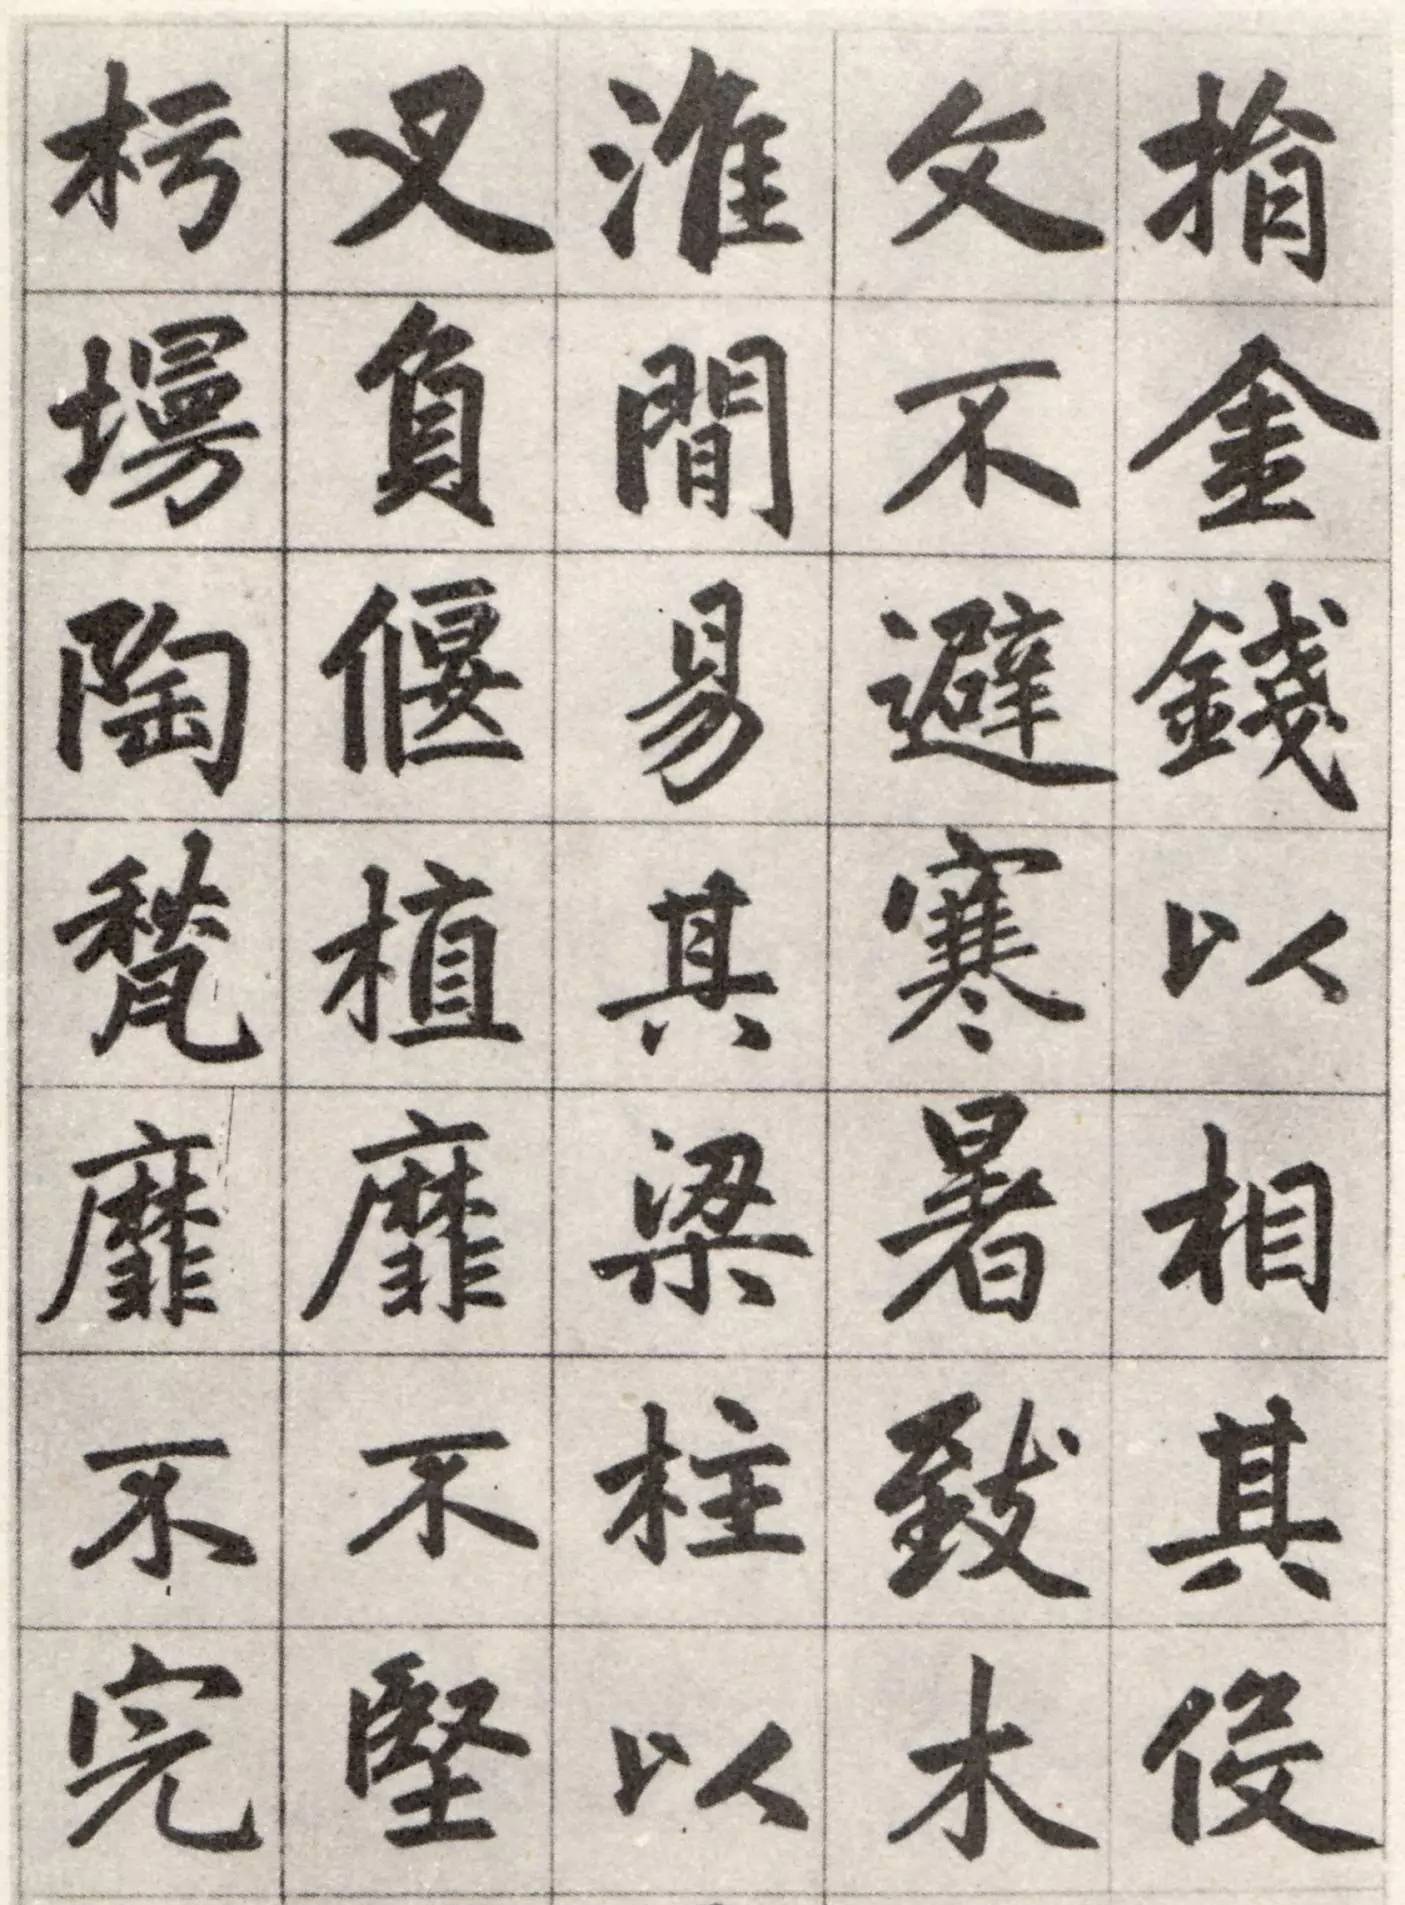 捐金錢以相其役
文不避寒暑致木
淮間易其梁柱以
叉負偃植靡不堅
杇墁陶甃靡不完